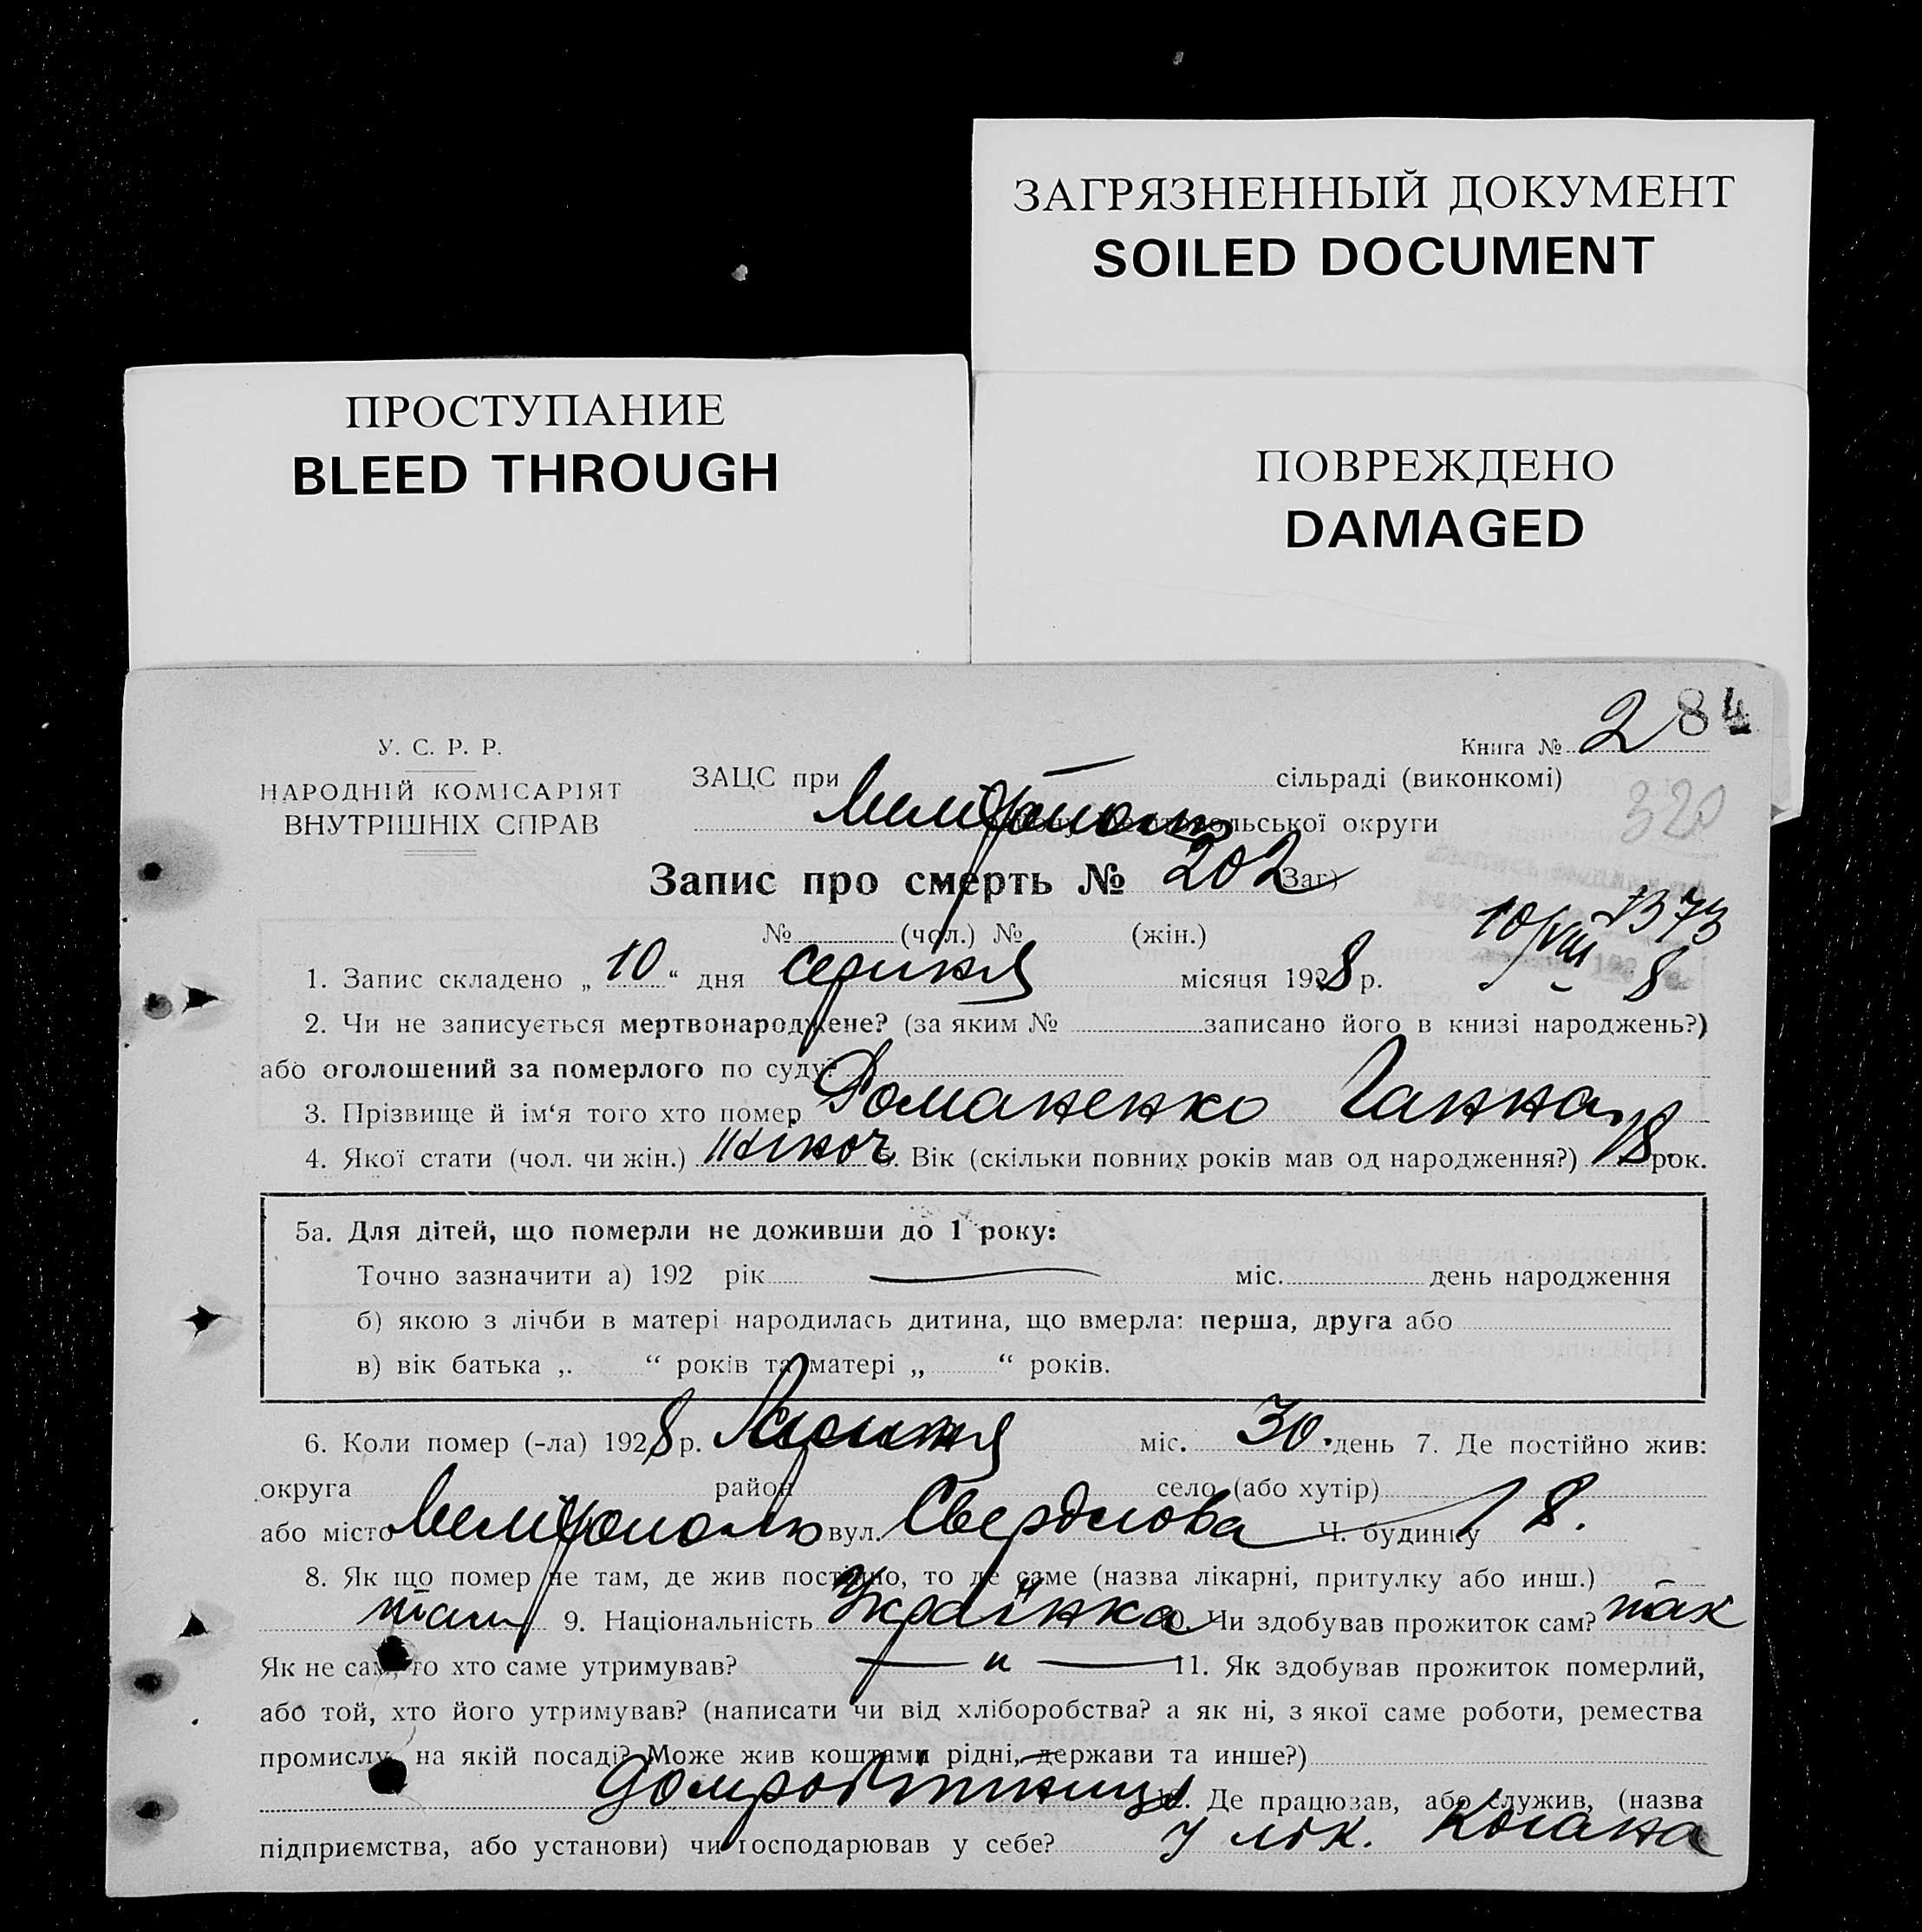 ЗАГРЯЗНЕННЫЙ ДОКУМЕНТ
SOILED DOCUMENT
ПРОСТУПАНИЕ
BLEED THROUGH
ПОВРЕЖДЕНО
DAMAGED
284
У. С. Р. Р.
НАРОДНІЙ КОМІСАРІЯТ
ВНУТРІШНІХ СПРАВ
Книга № 2
ЗАЦС при сільраді (виконкомі)
округи
320
Запис про смерть № 202 Заг)
№ (чол.) № (жін.)
10/VIII 8
1. Запис складено „ 10 “ дня серпня місяця 1928 р.
2. Чи не записується мертвонароджене? (за яким № записано його в книзі народжень?)
або оголошений за померлого по суду?
3. Прізвище й ім‘я того хто помер Романенко Ганна
4. Якої стати (чол. чи жін.) жіноч 5. Вік (скільки повних років мав од народження?) 18 рок.
5а. Для дітей, що померли не доживши до 1 року:
Точно зазначити а) 192 рік міс. день народження
б) якою з лічби в матері народилась дитина, що вмерла: перша, друга або
в) вік батька „ “ років та матері „ “ років.
6. Коли помер (-ла) 1928 р. міс. 30 день 7. Де постійно жив:
округа район село (або хутір)
або місто Мелітополь вул. Свердлова Ч. будинку 18.
8. Як що помер не там, де жив постійно, то де саме (назва лікарні, притулку або инш.)
там 9. Національність Українка 10. Чи здобував прожиток сам? так
Як не сам, то хто саме утримував? — " — 11. Як здобував прожиток померлий,
або той, хто його утримував? (написати чи від хліборобства? а як ні, з якої саме роботи, ремества
промислу, на якій посаді? Може жив коштами рідні, держави та инше?)
домробітниця 12. Де працював, або служив, (назва
підприємства, або установи) чи господарював у себе? у лік. Когана